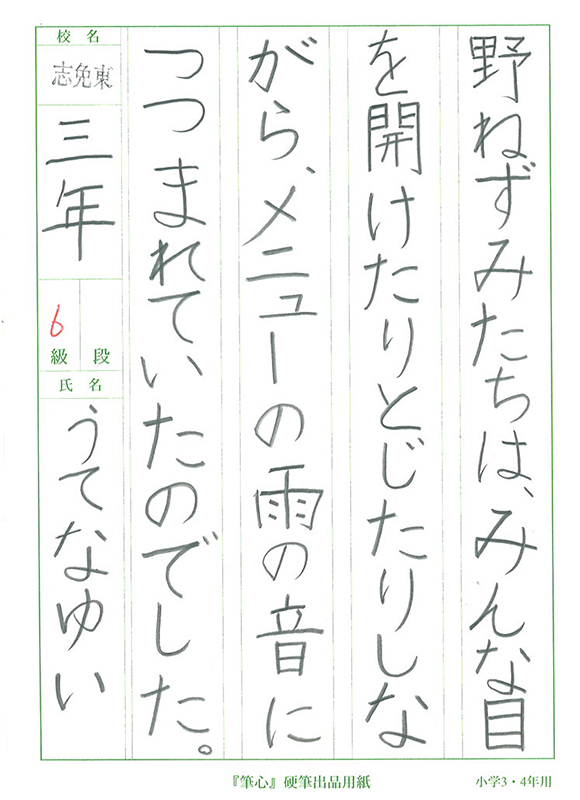 野ねずみたちは、みんな目
を開けたりとじたりしな
がら、メニューの雨の音に
つつまれていたのでした。
校名
志免東
三年
6
級 段
氏名
うてなゆい
『筆心』硬筆出品用紙
小学3・4年用